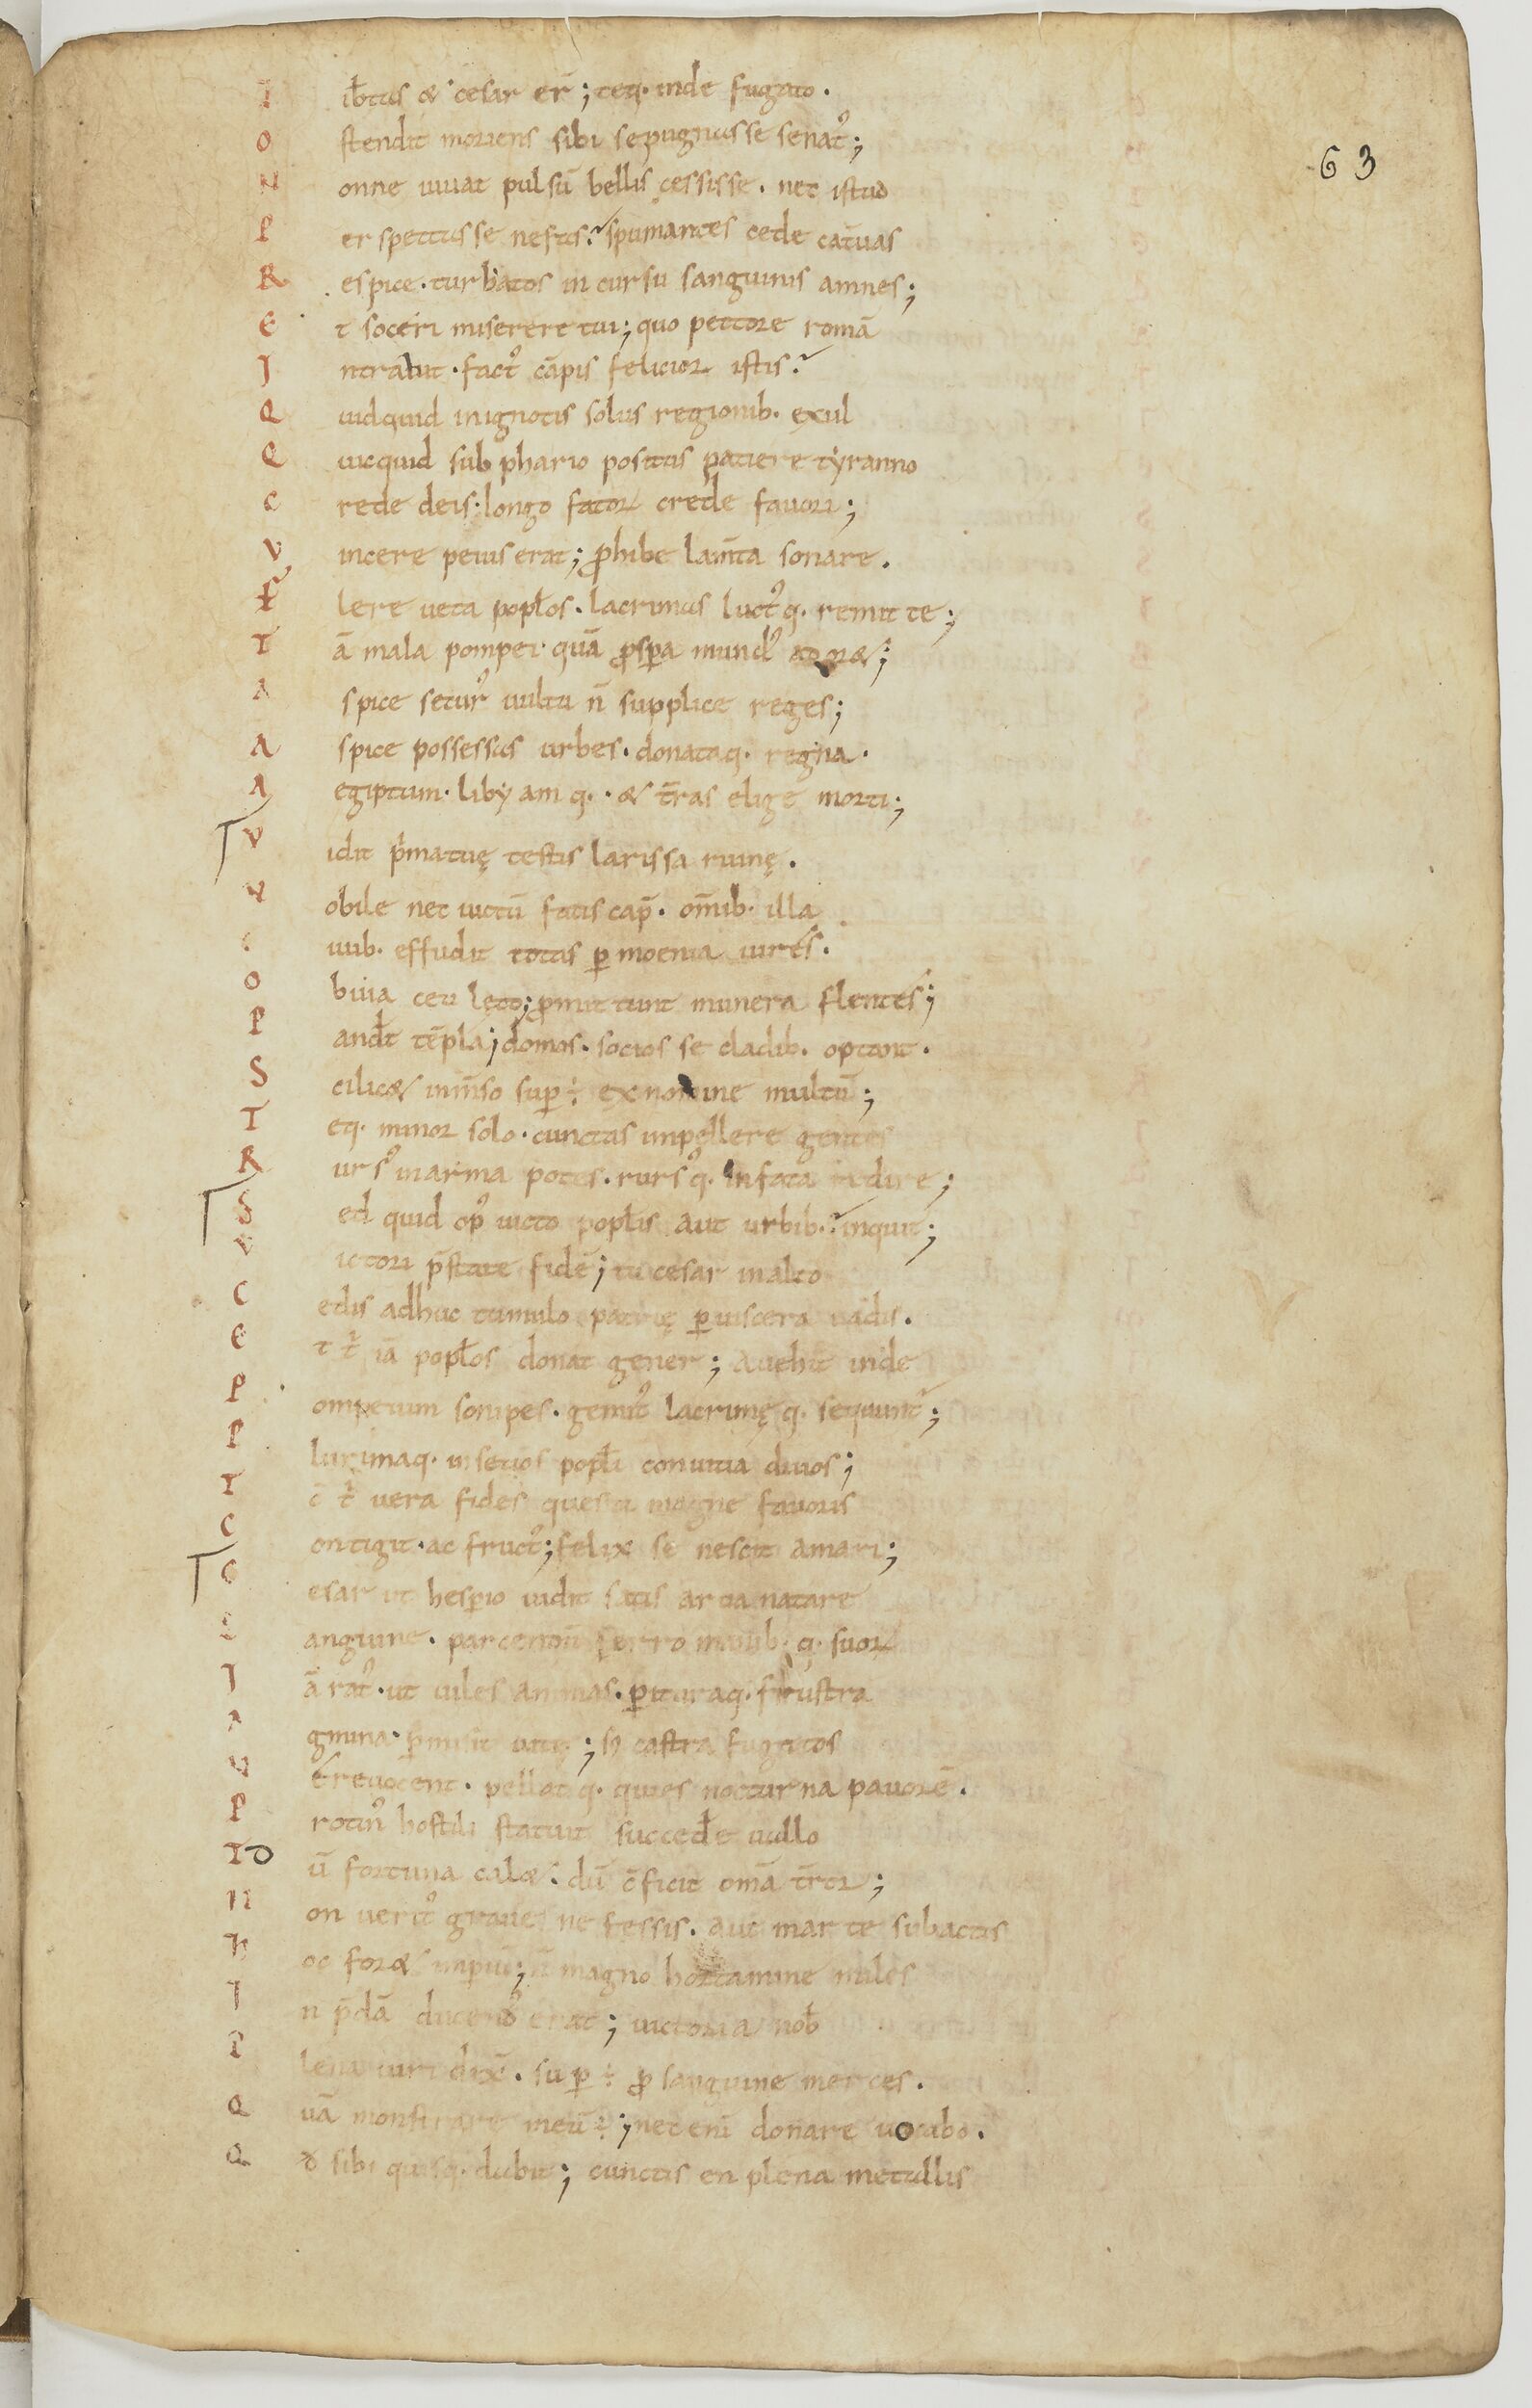 63
I ib̄tas & cesar er̄; teq· inde fugato.
O stendit moriens sibi se pugnasse senat᷒;
N onne iuuat pulsū bellis cessisse. nec istud
P erspectasse nefas? spumantes cede cateruas
R espice. turbatos incursu sanguinis amnes;
E t soceri miserere tui; quo pectore romā
I ntrabit. fact᷒ cāpis felicior istis?
Q uidquid in ignotis solus regionib· exul
Q uicquid sub phario positus patiere tyranno
C rede deis. longo fatoꝝ crede fauori;
V incere peius erat; ꝓhibe lam̄ta sonare.
F lere ueta popl̄os. lacrimas luct᷒q· remitte;
T ā mala pompei quā ꝓsꝑa mund᷒ ador&;
A spice secur᷒ uultu n̄ supplice reges;
A spice possessas urbes. donataq· regna.
A egiptum. libyamq·. & t̄ras elige morti;
V idit p̄ma tuę testis larissa ruinę.
N obile nec uictū fatis cap̄. om̄ib· illa
C iuib· effudit totas ꝑ moenia uires.
O buia ceu lęto; ꝓmittunt munera flentes;
P and̄t tēpla; domos. socios se cladib· optant.
S cilic& inm̄so suꝑ ÷ ex nomine multū;
T eq· minor solo. cunctas inpellere gentes
R urs᷒ in arma potes. rurs᷒q· in fata redire;
S ed quid op᷒ uicto popl̄is aut urbib·? inquit;
V ictori p̄state fidē; tu cesar in alto
C edis adhuc tumulo patrię ꝑ uiscera uadis.
E t t̄ iā popl̄os donat gener; auehit inde
P ompeium sonipes. gemit᷒ lacrimęq· sequunt̄;
P lurimaq· in seuos popl̄i conuitia diuos;
T c̄ t̄ uera fides quesiti magne fauoris
C ontigit. ac fruct᷒; felix se nescit amari;
C esar ut hesꝑio uidit satis arua natare
S anguine. parcendū ferro manib·q· suoꝝ
I ā rat᷒. ut uiles animas. ꝑituraq· frustra
A gmina ꝑmisit uitę; sꝫ castra fugatos
N e reuocent. pellatq· quies nocturna pauorē.
P rotin᷒ hostili statuit succed̄e uallo
T ū fortuna cal&. dū c̄ficit om̄a t̄roꝝ;
N on uerit᷒ graue ne fessis. aut marte subactis
H oc for& imꝑiū; n̄ magno hortamine miles
I n p̄dā ducend᷒ erat; uictoria nob̄
P lena uiri dix̄. suꝑ ÷ ꝓ sanguine merces.
Q uā monstrare meū ÷; nec enī donare uocabo.
Q đ sibi quisq· dabit; cunctis en plena metallis